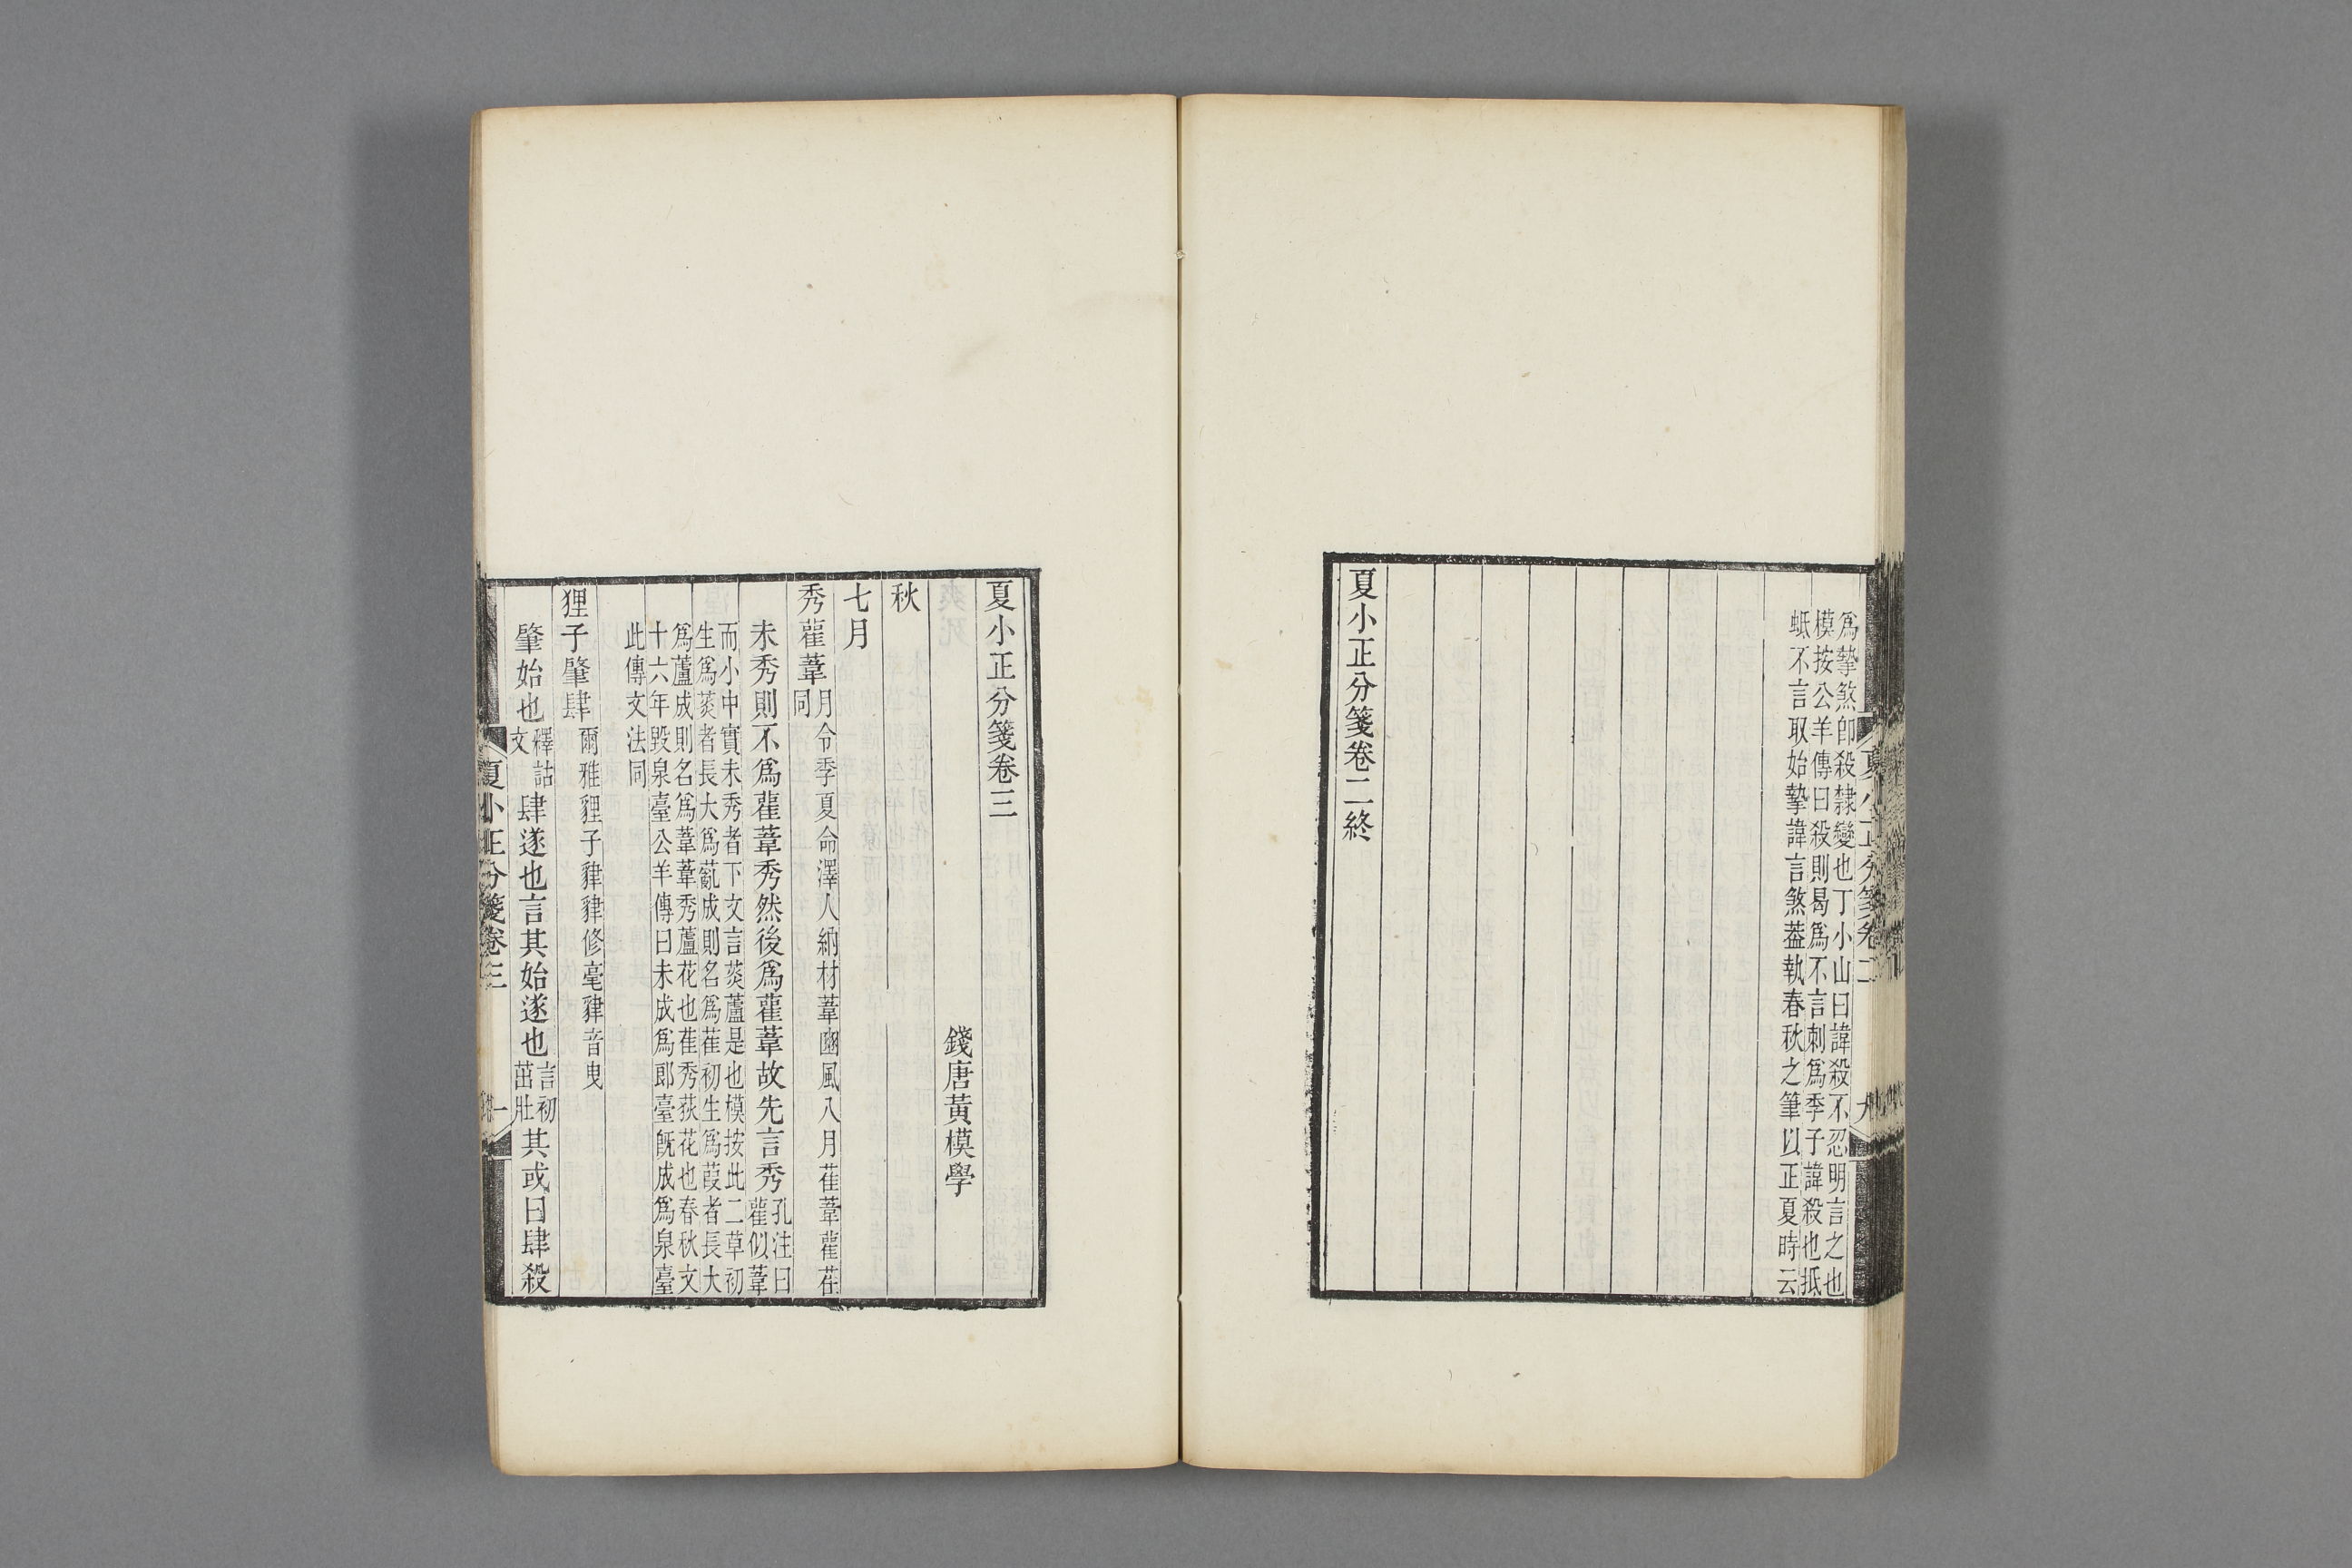 爲摯煞卽殺隸變也丁小山曰諱殺不忍明言之也
模按公羊傳曰殺則曷爲不言刺爲季子諱殺也抵
蚳不言取始摯諱言煞葢執春秋之筆以正夏時云
夏小正分箋卷二終
夏小正分箋卷二
夏小正分箋卷三
錢唐黃模學
秋
七月
秀雚葦月令季夏命澤人納材葦豳風八月萑葦雚萑
同
未秀則不爲雚葦秀然後爲雚葦故先言秀孔注曰
雚似葦
而小中實未秀者下文言菼蘆是也模按此二草初
生爲菼者長大爲薍成則名爲萑初生爲葭者長大
爲蘆成則名爲葦葦秀蘆花也萑秀荻花也春秋文
十六年毀泉臺公羊傳曰未成爲郎臺旣成爲泉臺
此傳文法同
狸子肇肆爾雅貍子貄貄修毫貄音曳
肇始也釋詁
文
肆遂也言其始遂也言初
茁壯
其或曰肆殺
夏小正分箋卷三
一